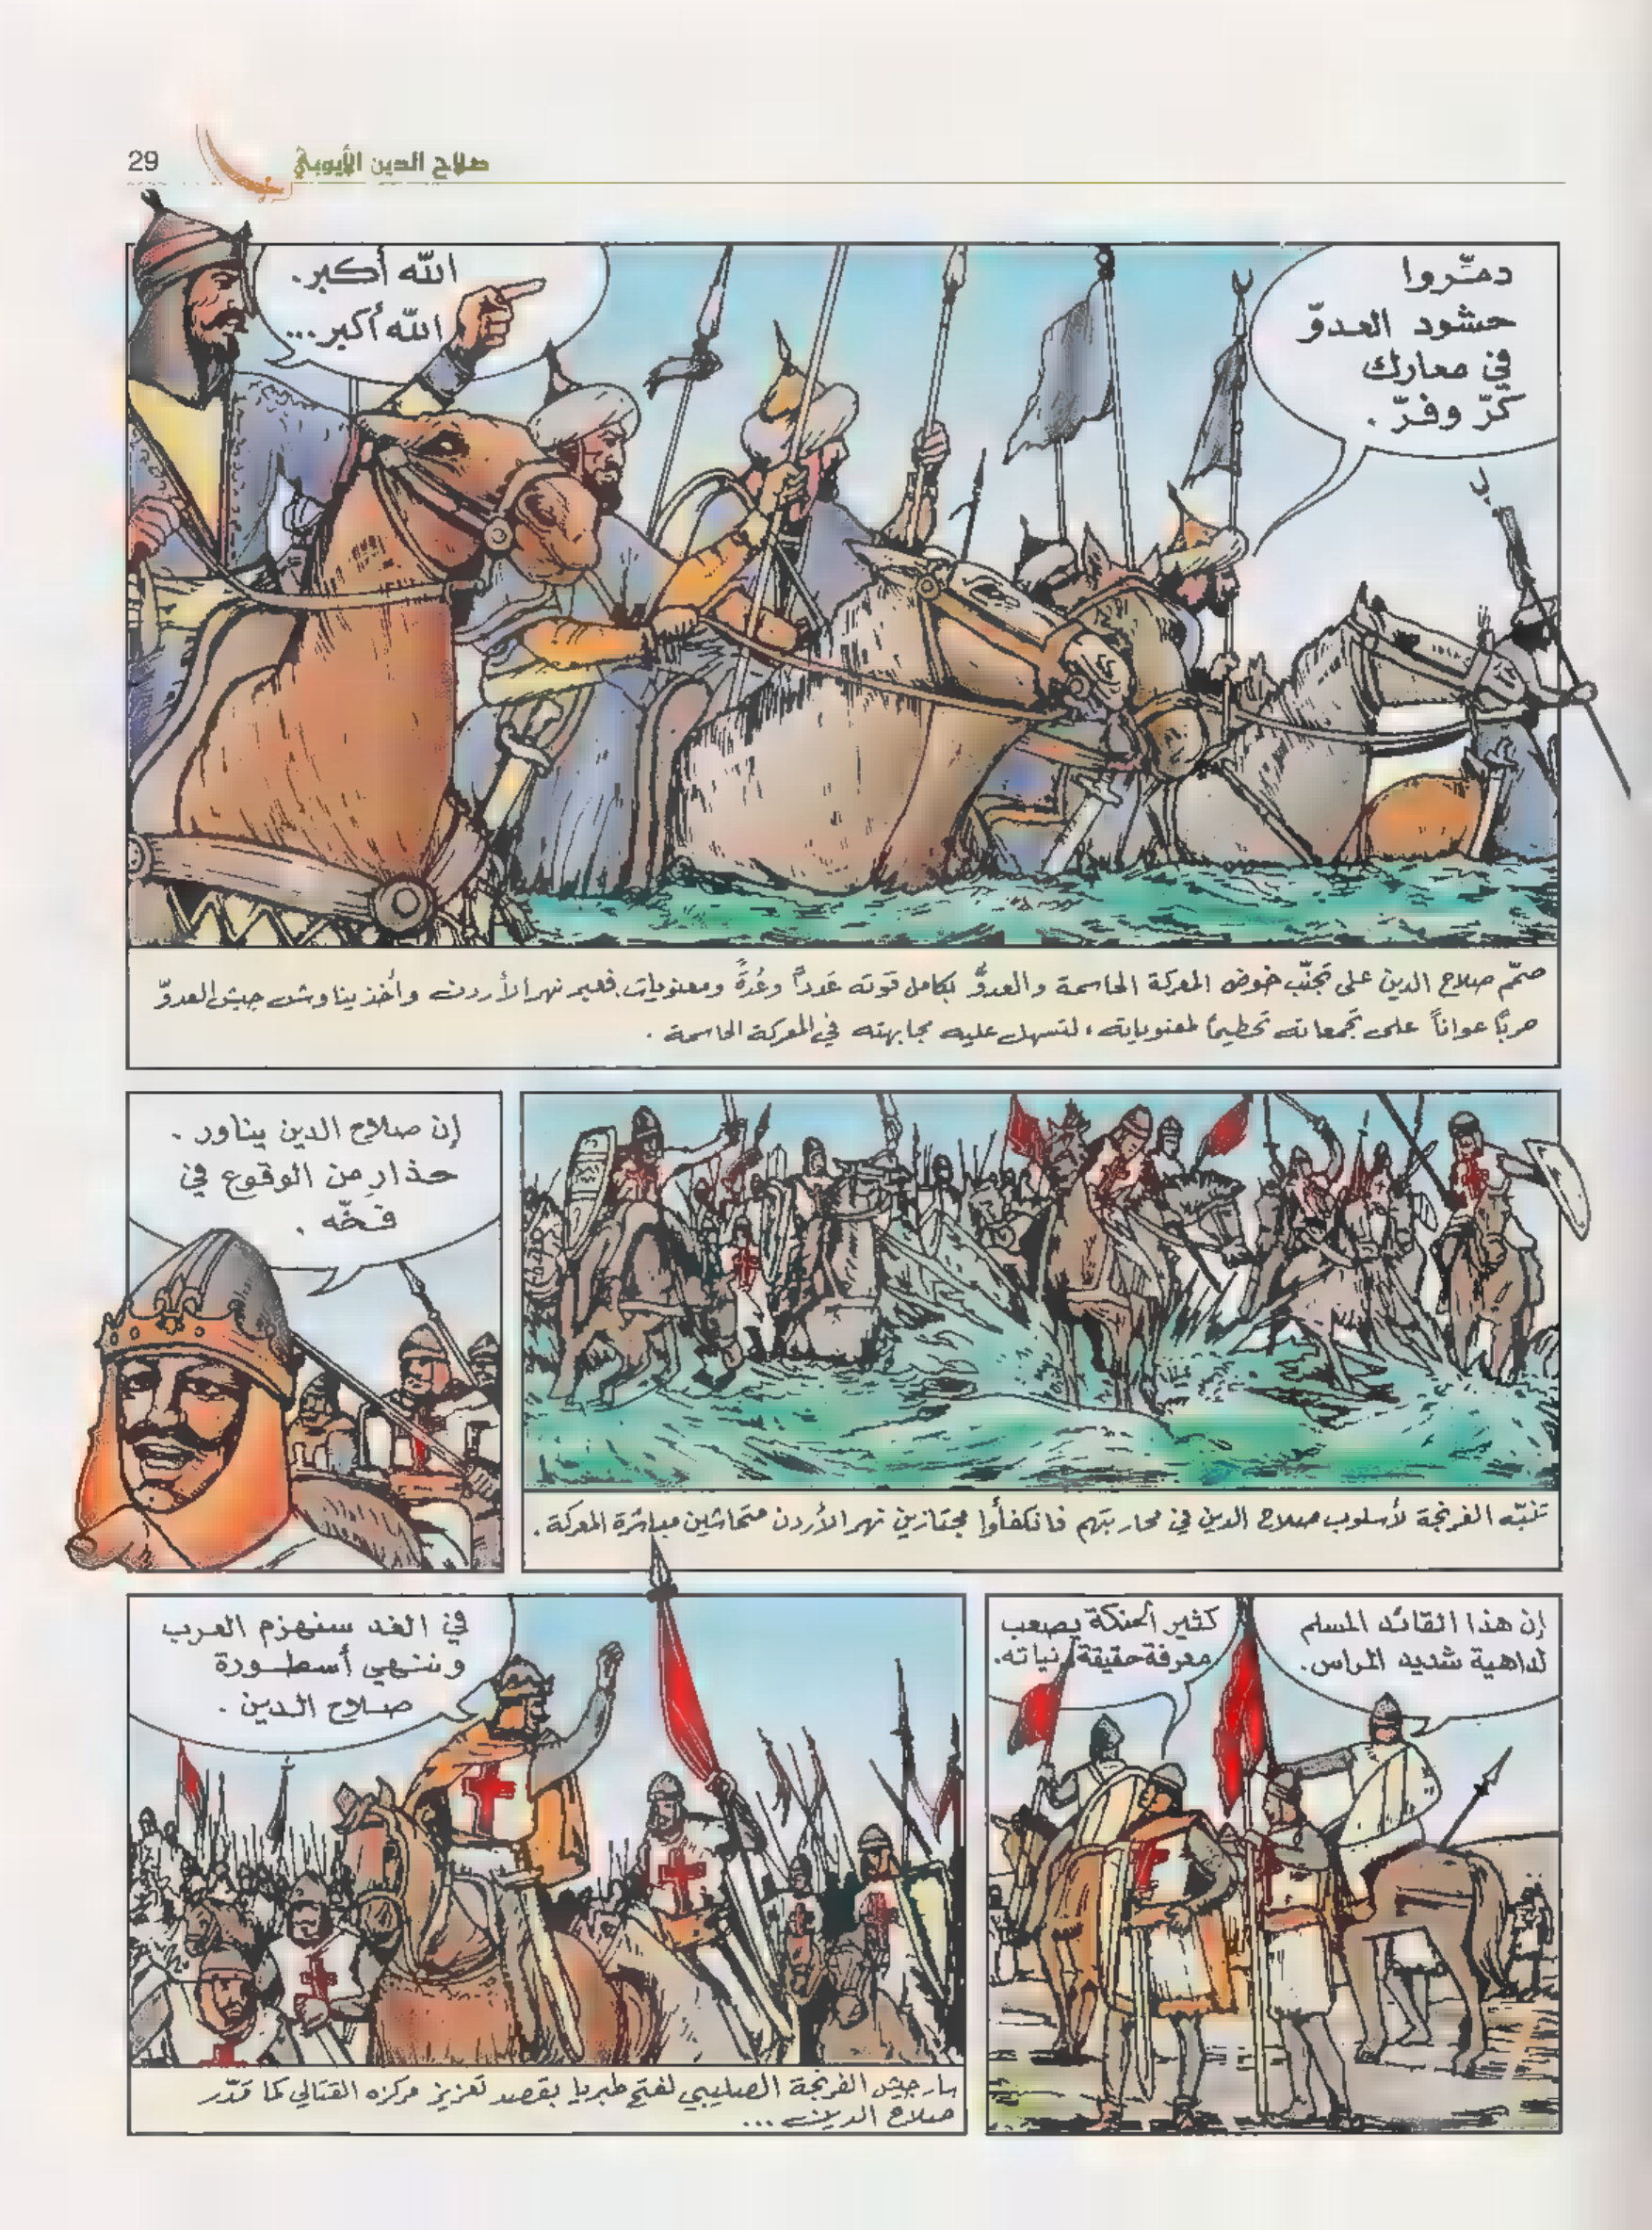 29
صلاح الدين الأيوبي
دمّروا
حشود العدوّ
في معارك
كرّ وفرّ.
الله أكبر.
الله أكبر...
صمّم صلاح الدين على تجنّب خوض المعركة الحاسمة والعدوُّ بكامل قوته عَدداً وعُدةً ومعنويات. فعبر نهر الأردن وأخذ يناوش جيش العدوّ
حرباً عواناً على تجمعاته تحطيماً لمعنوياته، لتسهل عليه مجابهته في المعركة الحاسمة.
تنبّه الفرنجة لأسلوب صلاح الدين في محاربتهم فانكفأوا مجتازين نهر الأردن متحاشين مباشرة المعركة.
إن صلاح الدين يناور.
حذارِ من الوقوع في
فخّه.
إن هذا القائد المسلم
لداهية شديد المراس.
كثير الحنكة يصعب
معرفة حقيقة نياته.
في الغد سنهزم العرب
وننهي أسطورة
صلاح الدين.
سار جيش الفرنجة الصليبي لفتح طبريا بقصد تعزيز مركزه القتالي كما قدّر
صلاح الدين...